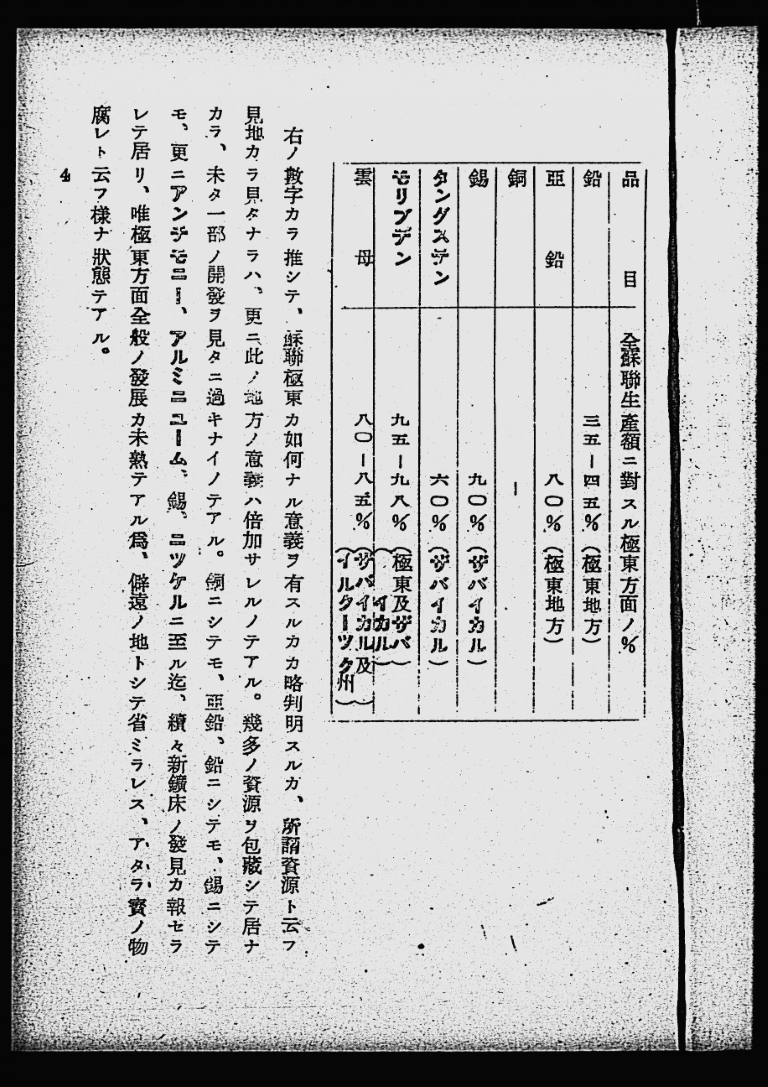 品目　全蘇聯生產額ニ對スル極東方面ノ%
鉛　三五―四五%（極東地方）
亞鉛　八〇%（極東地方）
銅　―
錫　九〇%（ザバイカル）
タングステン　六〇%（ザバイカル）
モリブデン　九五―九八%（極東及ザバイカル）
雲母　八〇―八五%（ザバイカル及イルクーツク州）
右ノ數字カラ推シテ、蘇聯極東カ如何ナル意義ヲ有スルカカ略判明スルカ、所謂資源ト云フ
見地カラ見タナラハ、更ニ此ノ地方ノ意義ハ倍加サレルノテアル。幾多ノ資源ヲ包藏シテ居ナ
カラ、未タ一部ノ開發ヲ見タニ過キナイノテアル。銅ニシテモ、亞鉛、鉛ニシテモ、錫ニシテ
モ、更ニアンチモニー、アルミニユーム、錫、ニツケルニ至ル迄、續々新鑛床ノ發見カ報セラ
レテ居リ、唯極東方面全般ノ發展カ未熟テアル爲、僻遠ノ地トシテ省ミラレス、アタラ寶ノ物
腐レト云フ樣ナ狀態テアル。
4